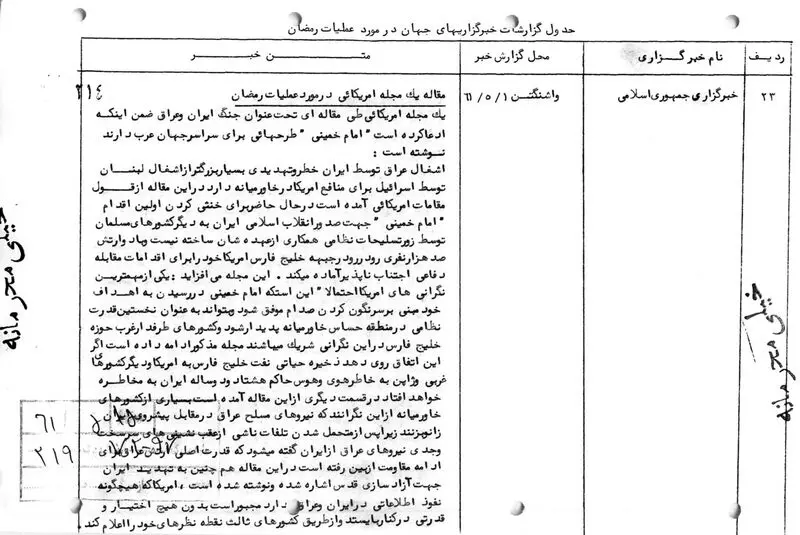 جدول گزارشات خبرگزاریهای جهان در مورد عملیات رمضان
ردیف
نام خبرگزاری
محل گزارش خبر
متن خبر
۲۳
خبرگزاری جمهوری اسلامی
واشنگتن ۶۱/۵/۱
۲۱٤
مقاله یك مجله امریکائی در مورد عملیات رمضان
یك مجله امریکائی طی مقاله ای تحت عنوان جنگ ایران وعراق ضمن اینکه
ادعا کرده است "امام خمینی" طرحهائی برای سراسر جهان عرب دارند
نوشته است :
اشغال عراق توسط ایران خطر وتهدیدی بسیار بزرگتر از اشغال لبنان
توسط اسرائیل برای منافع امریکا در خاورمیانه دارد در این مقاله از قول
مقامات امریکائی آمده است در حال حاضر برای خنثی کردن اولین اقدام
"امام خمینی" جهت صدور انقلاب اسلامی ایران به دیگر کشورهای مسلمان
توسط زور تسلیحات نظامی همکاری از عهده شان ساخته نیست وباد وارتش
صد هزار نفری رود ررود رجبهه خلیج فارس امریکا خود را برای اقدامات مقابله
دفاعی اجتناب ناپذیر آماده میکند . این مجله می افزاید : یکی از مهمترین
نگرانی های امریکا احتمالا" این استکه امام خمینی در رسیدن به اهداف
خود مبنی بر سرنگون کردن صدام موفق شود وبتواند به عنوان نخستین قدرت
نظامی در منطقه حساس خاورمیانه پدیدار شود وکشورهای طرفدار غرب حوزه
خلیج فارس در این نگرانی شریك میباشند مجله مذکور ادامه داده است اگر
این اتفاق روی دهد ذخیره حیاتی نفت خلیج فارس به امریکا ودیگر کشورهای
غربی وژاپن به خاطر هوی وهوس حاکم هشتاد ود وساله ایران به مخاطره
خواهد افتاد در قسمت دیگری از این مقاله آمده است بسیاری از کشورهای
خاورمیانه از این نگرانند که نیروهای مسلح عراق در مقابل پیشروی ایران
زانو بزنند زیرا پس از متحمل شدن تلفات ناشی از عقب نشینی های سرسخت
وجدی نیروهای عراق از ایران گفته میشود که قدرت اصلی ارتش عراق برای
ادامه مقاومت از بین رفته است در این مقاله هم چنین به تهدید ایران
جهت آزاد سازی قدس اشاره شده ونوشته شده است ، امریکا که هیچگونه
نفوذ اطلاعاتی در ایران وعراق دارد مجبور است بدون هیچ اختیار و
قدرتی در کنار بایستد واز طریق کشورهای ثالث نقطه نظرهای خود را اعلام کند .
خیلی محرمانه
خیلی محرمانه
۶۱
۲۱۹